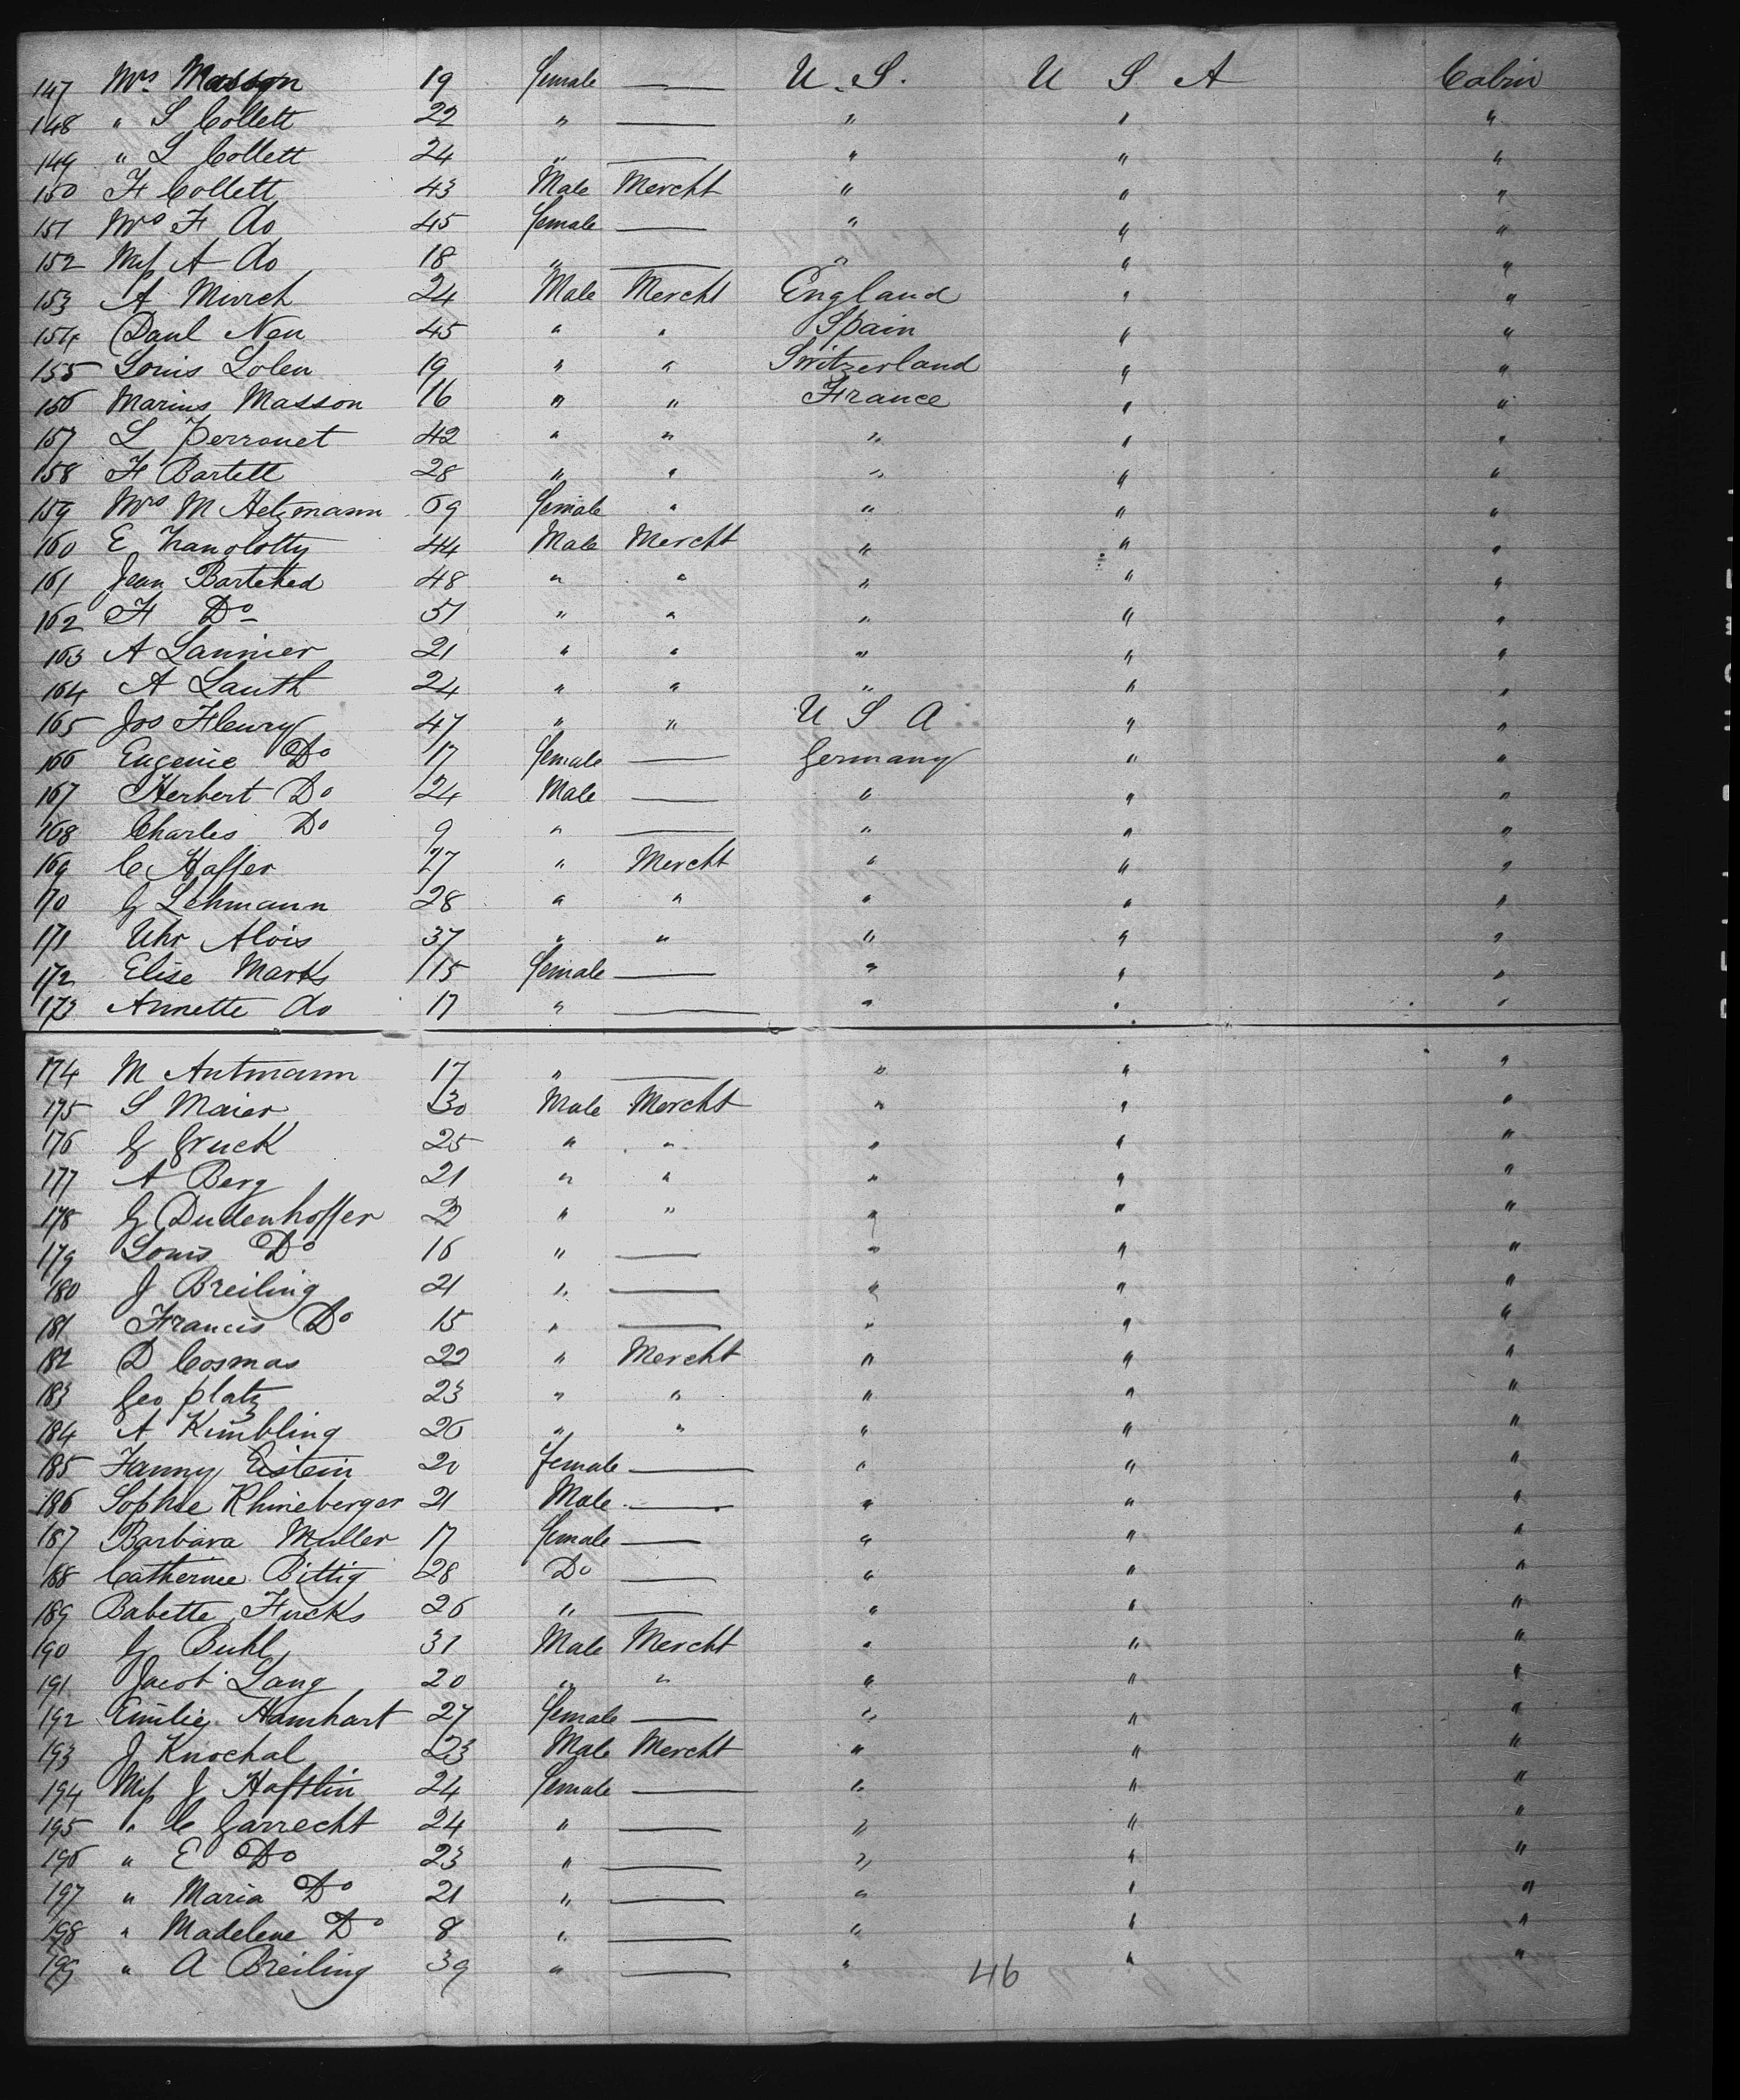 147 Mrs Masson 19 female — U.S. U S A Cabin
148 " S Collett 22 " — " " "
149 " L Collett 24 " — " " "
150 F Collett 43 Male Mercht " " "
151 Mrs F do 45 female — " " "
152 Miss A do 18 " — " " "
153 A Murch 24 Male Mercht England " "
154 Paul Neu 45 " " Spain " "
155 Louis Solen 19 " " Switzerland " "
156 Marius Masson 16 " " France " "
157 L Perronet 42 " " " " "
158 F Bartett 28 " " " " "
159 Mrs M Hetzmann 69 female " " " "
160 E 44 Male Mercht " " "
161 Jean Barteked 48 " " " " "
162 F Do 51 " " " " "
163 A Lannier 21 " " " " "
164 A Lauth 24 " " " " "
165 Jos Fleury 47 " " U S A " "
166 Eugenie Do 17 female — Germany " "
167 Herbert Do 24 Male — " " "
168 Charles Do 9 " — " " "
169 C Haffer 27 " Mercht " " "
170 G Lehmann 28 " " " " "
171 Uhr Alois 37 " " " " "
172 Elise Marks 15 female — " " "
173 Annette do 17 " — " " "
174 M Antmann 17 " — " " "
175 S Maier 30 Male Mercht " " "
176 G Gruck 25 " " " " "
177 A Berg 21 " " " " "
178 G Dudenhoffer 2 " " " " "
179 Louis Do 16 " — " " "
180 J Breiling 21 " — " " "
181 Francis Do 15 " — " " "
182 D Cosmas 22 " Mercht " " "
183 Geo Platz 23 " " " " "
184 A Kimbling 26 " " " " "
185 Fanny Eistein 20 Female — " " "
186 Sophie Rhineberger 21 Male — " " "
187 Barbara Muller 17 female — " " "
188 Catherine Bittig 28 Do — " " "
189 Babette Fucks 26 " — " " "
190 G Buhl 31 Male Mercht " " "
191 Jacob Lang 20 " " " " "
192 Emilie Hamhart 27 female — " " "
193 J Knochal 23 Male Mercht " " "
194 Miss J Hafflin 24 female — " " "
195 " C Garrecht 24 " — " " "
196 " E Do 23 " — " " "
197 " Maria Do 21 " — " " "
198 " Madelene Do 8 " — " " "
199 " A Breiling 39 " — " " "
46